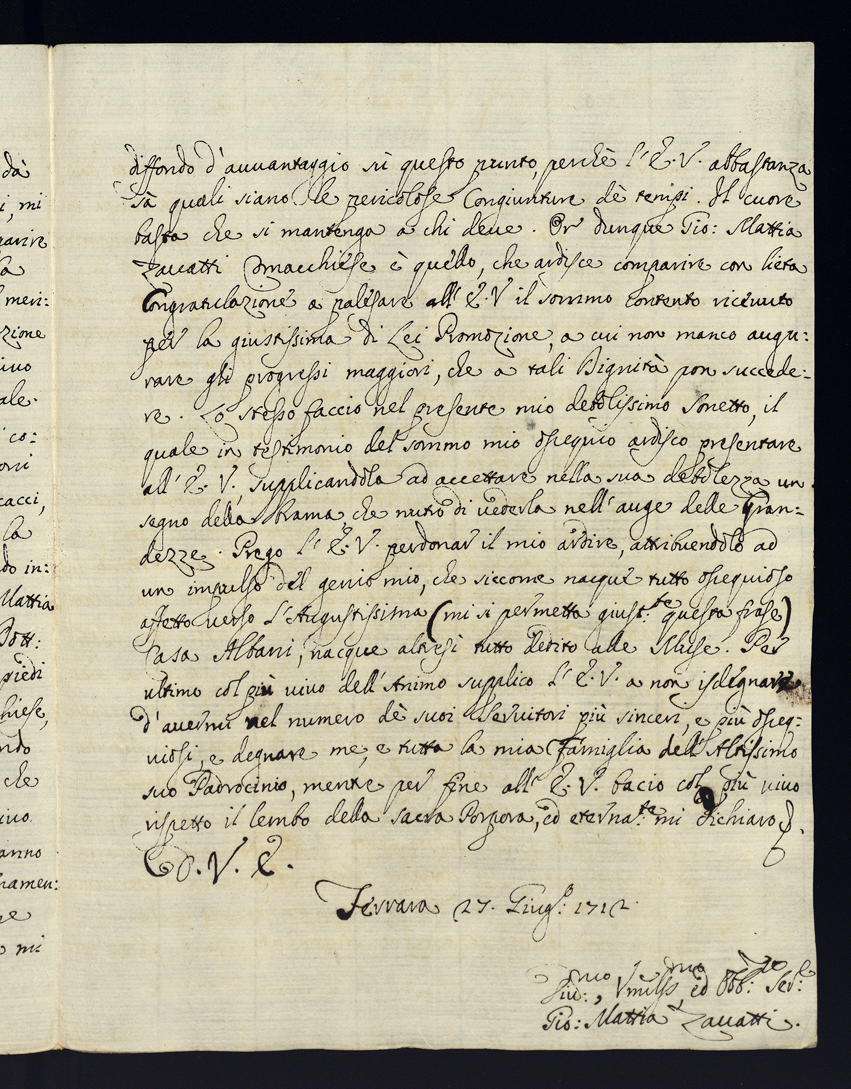 dà
diffondo d'auuantaggio sù questo punto, perchè l'E.V. abbastanza
i, mi
sà quali siano le pericolose Congiunture dè tempi. Il cuore
parire
basta che si mantenga a chi deue. Or dunque Gio: Mattia
la
Zauatti Comacchiese è quello, che ardisce comparire con lieta
meri:
Congratulazione a palesare all'E.V il sommo contento riceuuto
zione
per la giustissima di Lei Promozione, a cui non manco augu:
iuo
rare gli progressi maggiori, che a tali Dignità pon succede:
ale.
re. Lo stesso faccio nel presente mio debolissimo Sonetto, il
co:
quale in testimonio del sommo mio ossequio ardisco presentare
all'E.V. supplicandola ad accettare nella sua debolezza un
cacci,
segno della brama, che nutro di uederla nell'auge delle Gran:
la
dezze. Prego l'E.V. perdonar il mio ardire, attribuendolo ad
do in:
un impulso del genio mio, che siccome nacque tutto ossequioso
Mattia
affetto uerso L'Augustissima (mi si permetta giust.te questa frase)
Dott:
Casa Albani, nacque altresì tutto dedito alle Muse. Per
piedi
ultimo col più viuo dell'Animo supplico L'E.V. a non isdegnare
hiese,
d'auermi nel numero dè suoi Seruitori più sinceri, e più osseq:
ndo
uiosi, e degnare me, e tutta la mia Famiglia dell'Altissimo
che
suo Padrocinio, mentre per fine all'E.V. bacio col più viuo
iuo.
rispetto il lembo della sacra Porpora, ed eterna.te mi dichiaro
anno
D.V.E.
namen:
Ferrara 27. Giug.o 1712
mi
Diu:mo, Vmiliss.mo ed Obb:mo Ser:e
Gio: Mattia Zauatti.